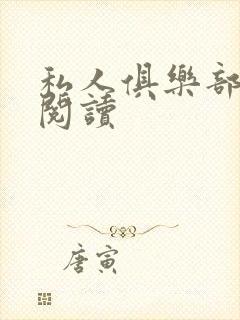 私人俱樂部
閱讀
唐寅